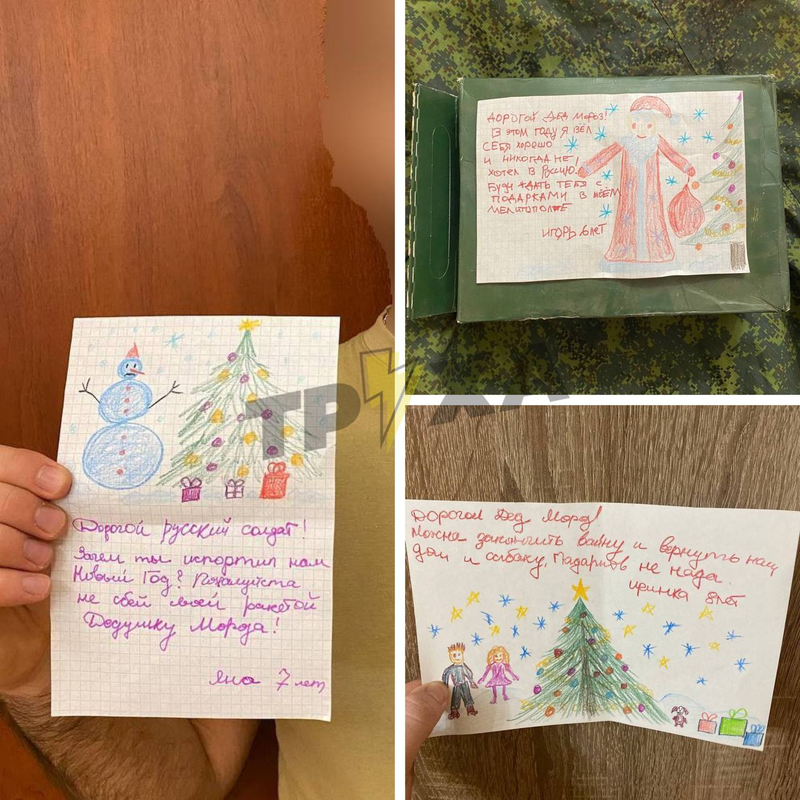 Дорогой русский солдат!
Зачем ты испортил нам
Новый Год? Пожалуйста
не сбей своей ракетой
Дедушку Мороза!
Яна 7 лет
ДОРОГОЙ ДЕД МОРОЗ!
В ЭТОМ ГОДУ Я ВЁЛ
СЕБЯ ХОРОШО
И НИКОГДА НЕ
ХОТЕЛ В РУССИЮ.
БУДУ ЖДАТЬ ТЕБЯ С
ПОДАРКАМИ В
МЕЛИТОПОЛЕ
ИГОРЬ 6 ЛЕТ
ТРУХА
Дорогой Дед Мороз!
Можна закончить вайну и вернуть наш
дом и сабаку. Падарков не нада.
Иринка 8 лет